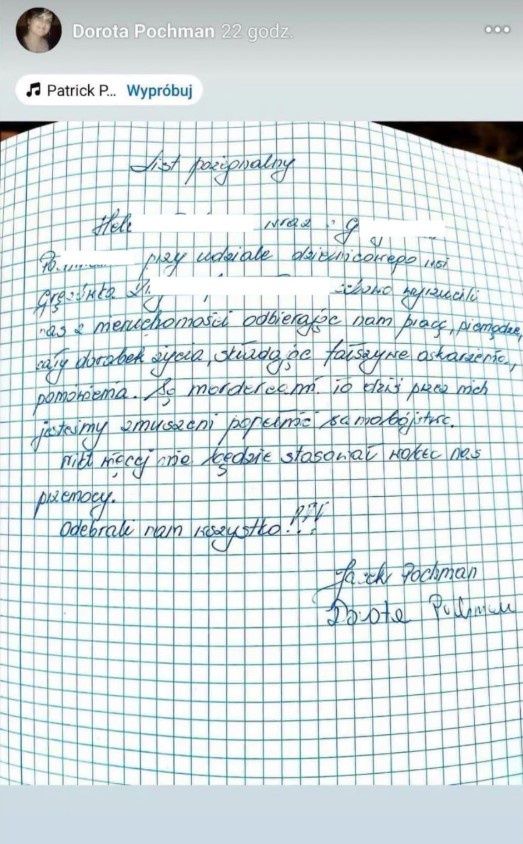 Dorota Pochman 22 godz.
Patrick P... Wypróbuj
List pożegnalny
Hele wraz z G
Po przy udziale dzielnicowego wsi
wyrzucili
nas z nieruchomości odbierając nam pracę, pieniądze,
cały dorobek życia, składając fałszywe oskarżenia,
pomówienia. Są mordercami to dziś przez nich
jesteśmy zmuszeni popełnić samobójstwo.
Nikt więcej nie będzie stosował wobec nas
przemocy.
Odebrali nam wszystko!!!
Jacek Pochman
Dorota Pochman